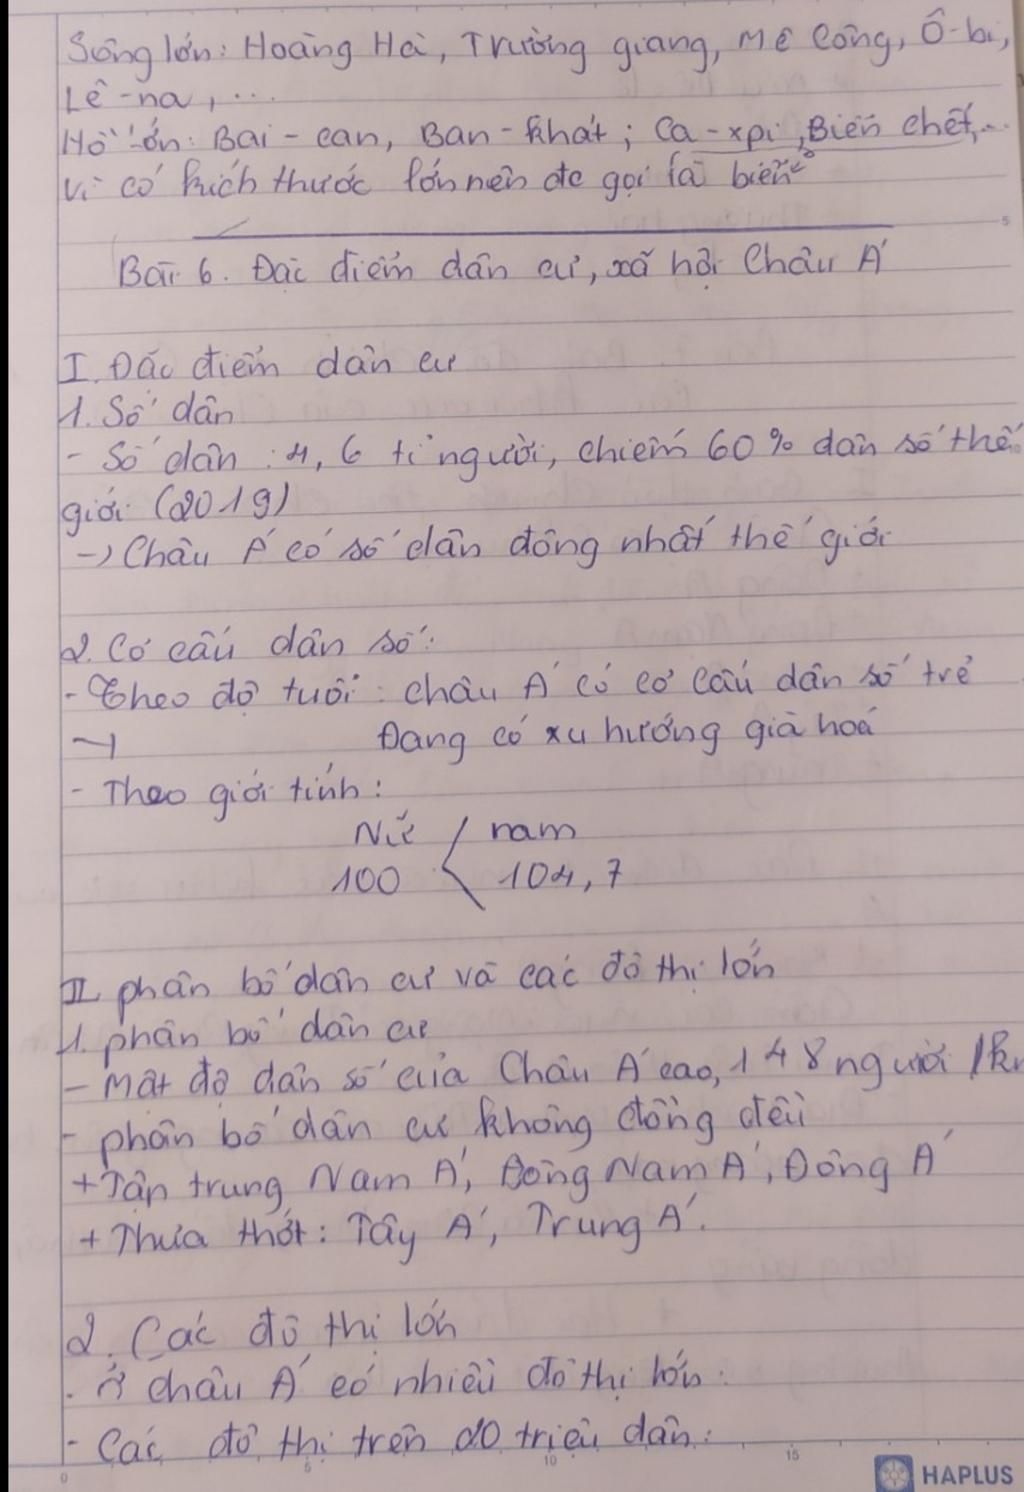 Sông lớn: Hoàng Hà, Trường giang, Mê Công, Ô-bi,
Lê-na, ...
Hồ lớn: Bai-can, Ban-khát; Ca-xpi, Biển chết,...
Vì có kích thước lớn nên đc gọi là biển
Bài 6. Đặc điểm dân cư, xã hội Châu Á
I. Đặc điểm dân cư
1. Số dân
- Số dân: 4,6 tỉ người, chiếm 60% dân số thế
giới (2019)
-> Châu Á có số dân đông nhất thế giới
2. Cơ cấu dân số:
- Theo độ tuổi: châu Á có cơ cấu dân số trẻ
-> Đang có xu hướng già hoá
- Theo giới tính:
Nữ / nam
100 < 104,7
II. phân bố dân cư và các đô thị lớn
1. phân bố dân cư
- Mật độ dân số của Châu Á cao, 148 người /k
- phân bố dân cư không đồng đều
+ Tập trung Nam Á, Đông Nam Á, Đông Á
+ Thưa thớt: Tây Á, Trung Á.
2. Các đô thị lớn
- Ở châu Á có nhiều đô thị lớn.
- Các đô thị trên 20 triệu dân:
0 5 10 15
HAPLUS